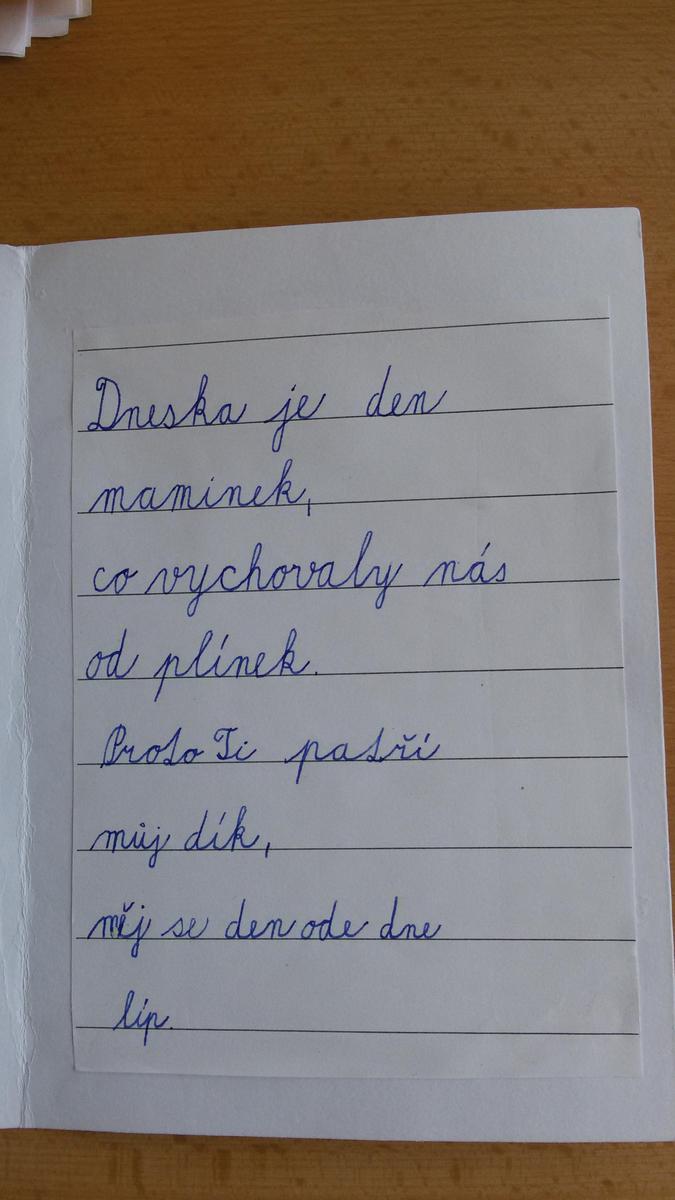 Dneska je den
maminek,
co vychovaly nás
od plínek.
Proto Ti patří
můj dík,
měj se den ode dne
líp.